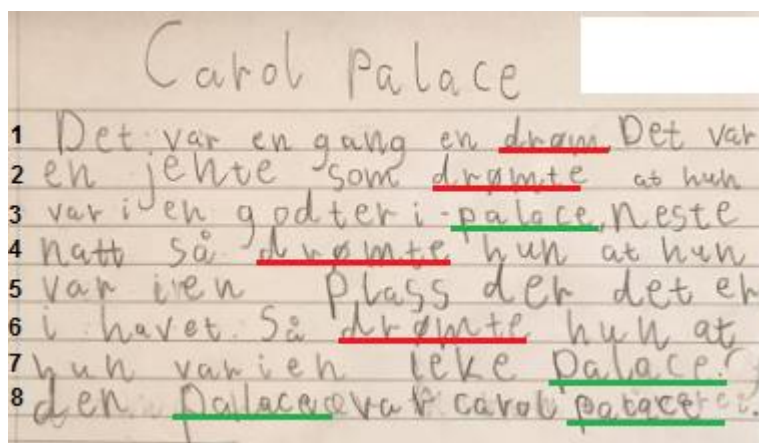 Carol Palace
1 Det var en gang en drøm. Det var
2 en jente som drømte at hun
3 var i en godteri-palace, neste
4 natt så drømte hun at hun
5 var i en plass der det er
6 i havet. Så drømte hun at
7 hun var i en leke palace.
8 den palace var carol palace